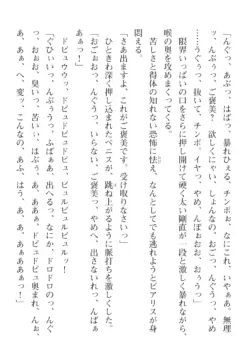 「んぐっ、あぶっ、はばっ、暴れひぇる。チンポぉ、なに、これぇ。いやぁぁ、無理
ッ、んぶううっ、ご褒美っ、欲しくにゃい、しょんなの、おごっ、んぐううっ、やめ
……うぐうっっ、抜いて、チンポ、イヤっ、やめ、んぼぉおおお、おぅううっ」
限界いっぱいの口をさらに押し開けて硬く太い剛直が一段と激しく暴れながら、
喉の奥を攻めまくってくる。
苦しさと得体の知れない恐怖に怯え、なんとしてでも逃れようとビアリスが身
悶える。
「さあ出ますよ、これがご褒美です。受け取りなさいっ」
「おごぉおっっ、んぐうっ、いらない、ご褒美っ、やめへ、出さないれっ、んばぁっ」
ひときわ深く押し込まれたペニスが、跳ね上がるように脈打ちを激しくした。
ドビュウウッ、ドビュドビュドビュッ、ビュルビュルビュルッ!
「ぐひぃいっっ、んぶううっ、ふばぁぁ、出へるうっ、なにか、ドロドロのっ、
っ、おおお、臭いっ、苦いぃ、はぶうぅ、あ、あああ、ドビュドビュ奥まれ、んぁ
あ、あぁ、へ、変っ、こんなの、あふっ、あ、あぁ、ああああぁっ!」